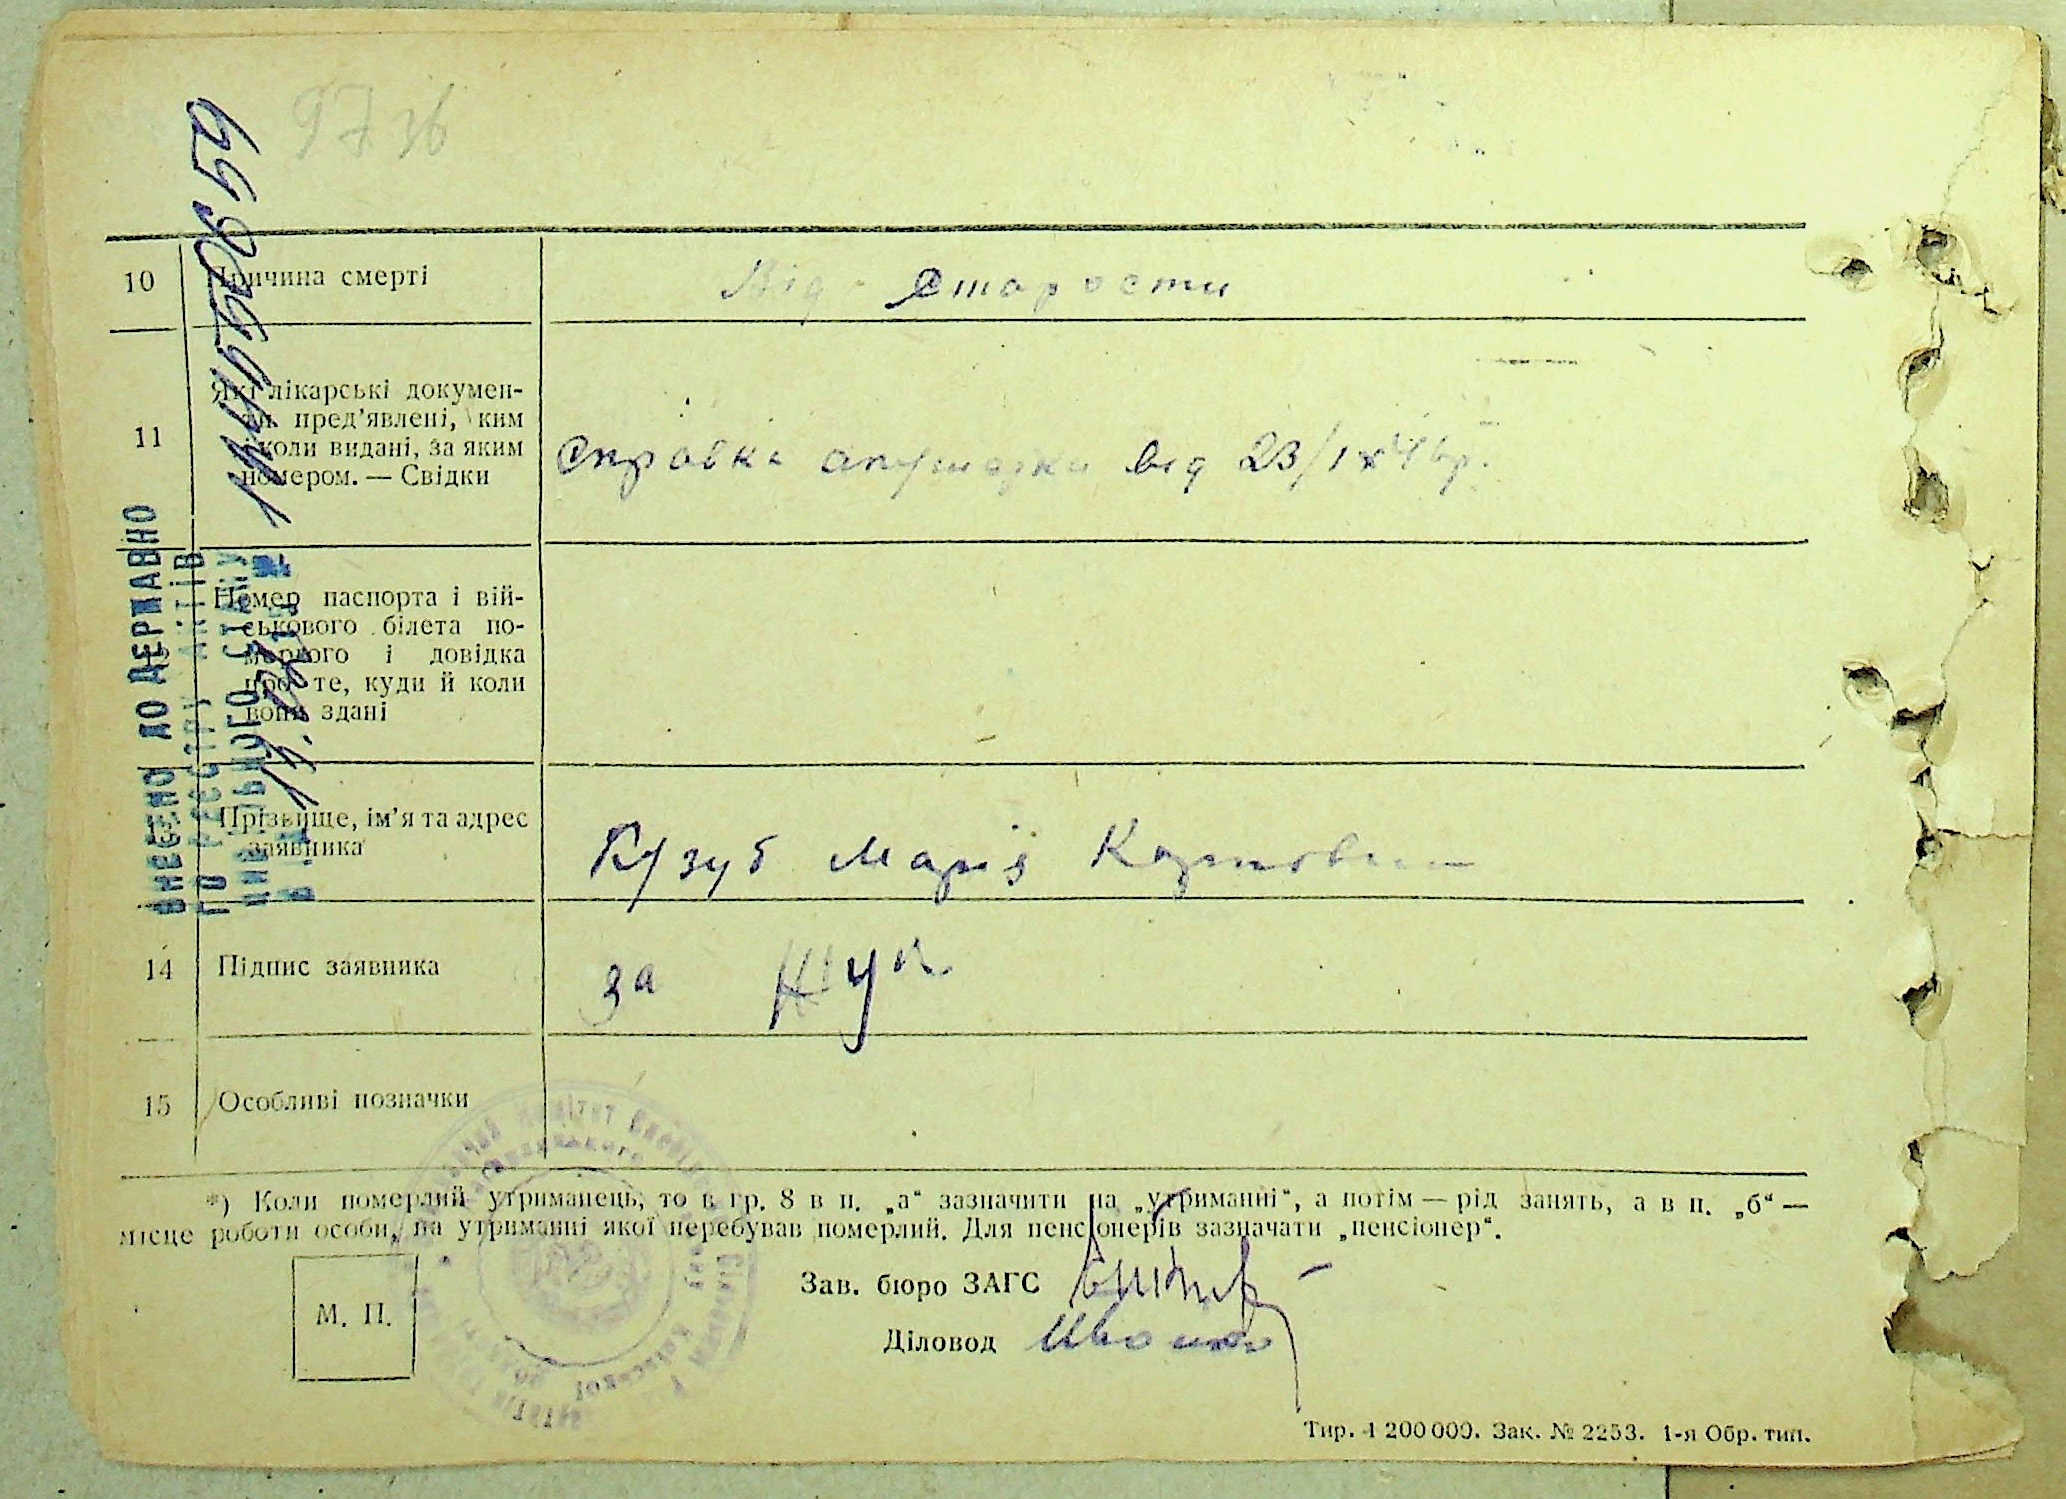 10 Причина смерті Від старости
11 Які лікарські докумен-
ти пред’явлені, ким
і коли видані, за яким
номером. — Свідки
Справка від 23/IX 46 р.
Номер паспорта і вій-
ськового білета по-
мерлого і довідка
про те, куди й коли
вони здані
13 Прізвище, ім’я та адрес
заявника
Кузуб Марія
14 Підпис заявника за
15 Особливі позначки
*) Коли померлий утриманець, то в гр. 8 в п. „а“ зазначити на „утриманні“, а потім — рід занять, а в п. „б“ —
місце роботи особи, на утриманні якої перебував померлий. Для пенсіонерів зазначати „пенсіонер“.
М. П.
Зав. бюро ЗАГС
Діловод
Тир. 1 200 000. Зак. № 2253. 1-я Обр. тип.
ВНЕСЕНО ДО ДЕРЖАВНО
ГО РЕЄСТРУ АКТІВ
ЦИВІЛЬНОГО СТАНУ